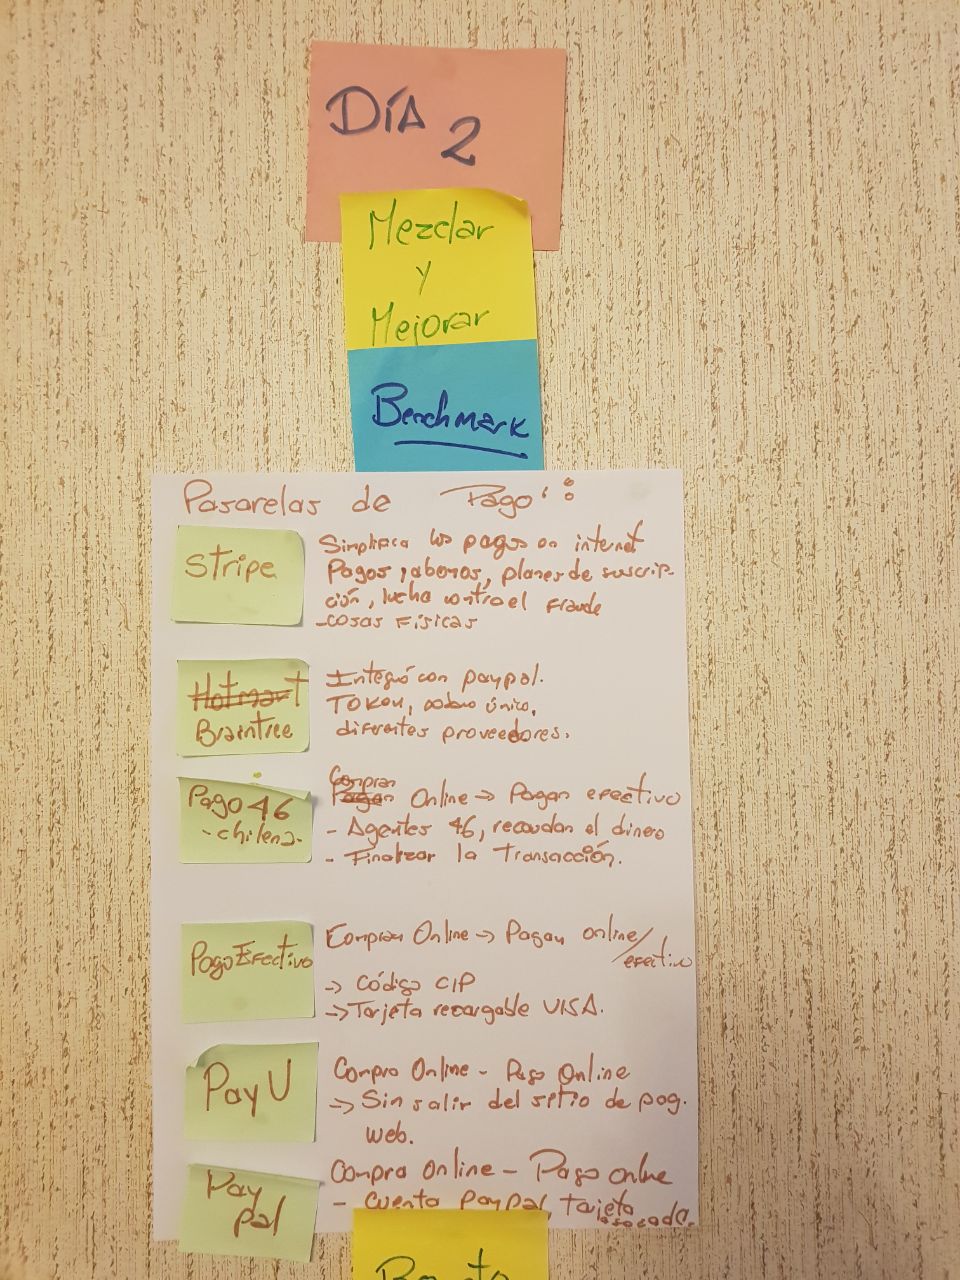 DÍA 2
Mezclar
y
Mejorar
Benchmark
Pasarelas de Pago:
Stripe
Simplifica los pagos en internet
Pagos, abonos, planes de suscrip-
ción, lucha contra el fraude
- cosas físicas
Hotmart
Braintree
Integró con paypal.
Token, único,
diferentes proveedores.
Pago 46
- chilena -
Compran
Pagan Online → Pagan efectivo
- Agentes 46, recaudan el dinero
- Finalizar la Transacción.
PagoEfectivo
Compran Online → Pagan online/
efectivo
→ Código CIP
→ Tarjeta recargable VISA.
PayU
Compra Online - Pago Online
→ Sin salir del sitio de pag.
web.
Pay
pal
Compra Online - Pago online
- Cuenta Paypal, Tarjeta
asociada.